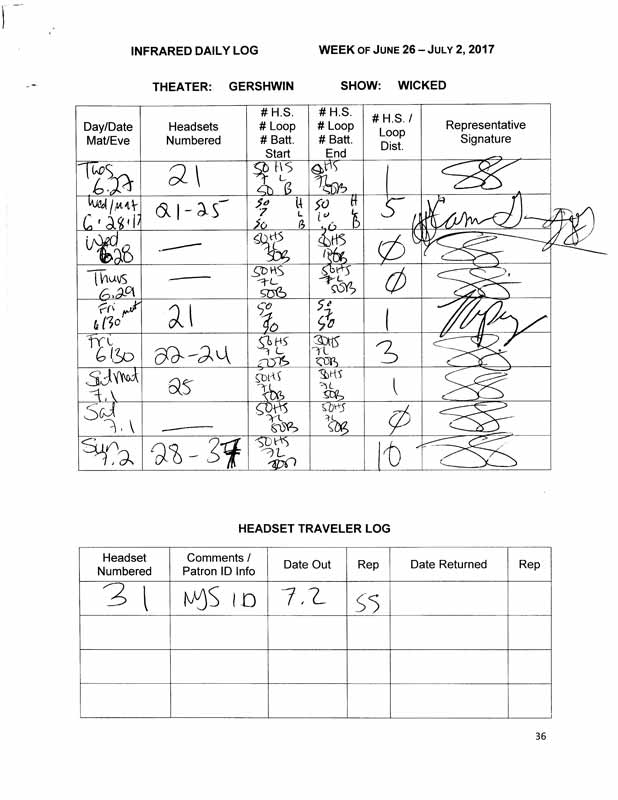 INFRARED DAILY LOG WEEK OF JUNE 26 – JULY 2, 2017
THEATER: GERSHWIN SHOW: WICKED
Day/Date
Mat/Eve
Headsets
Numbered
# H.S.
# Loop
# Batt.
Start
# H.S.
# Loop
# Batt.
End
# H.S. /
Loop
Dist.
Representative
Signature
Tues
6.27
21
50 HS
7 L
50 B
HS
7L
50B
1
Wed/mat
6.28.17
21-25
50 H
7 L
50 B
50 H
10 L
50 B
5
Wed
6.28
—
50HS
7L
50B
HS
0
Thurs
6.29
—
50HS
7L
50B
50HS
7L
50B
0
Fri mat
6/30
21
50
7
50
50
7
50
1
Fri
6/30
22-24
50HS
7L
50B
50HS
7L
50B
3
Sat Mat
7.1
25
50HS
7L
50B
50HS
7L
50B
1
Sat
7.1
—
50HS
7L
50B
50HS
7L
50B
0
Sun
7.2
28-37
50HS
7L
10
HEADSET TRAVELER LOG
Headset
Numbered
Comments /
Patron ID Info
Date Out
Rep
Date Returned
Rep
31
NYS ID
7.2
SS
36